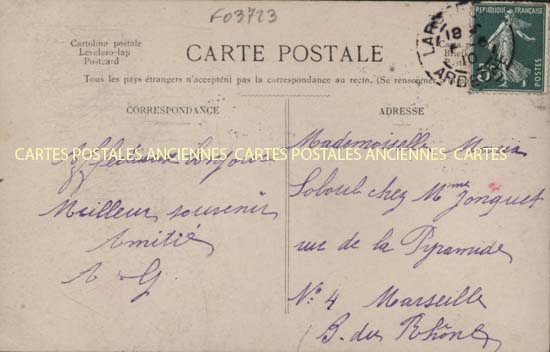 F03723
Cartolina postale
Levelezo-lap
Postcard
CARTE POSTALE
Tous les pays étrangers n'acceptent pas la correspondance au recto. (Se renseigner
REPUBLIQUE FRANÇAISE
5
POSTES
LAR
18
10
ARD
CORRESPONDANCE
ADRESSE
CARTES POSTALES ANCIENNES CARTES POSTALES ANCIENNES CARTES
Meilleur souvenir
Amitié
A G
Mademoiselle Maria
chez Mme Jonquet
rue de la Pyramide
N° 4 Marseille
B. du Rhône